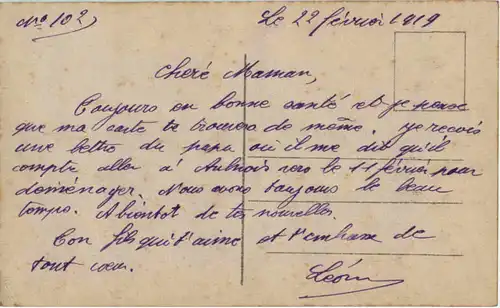 No 102
Le 22 février 1919
Cheré Maman,
Toujours en bonne santé et je pense
que ma carte te trouvera de même. Je reçois
une lettre du papa où il me dit qu'il
compte aller à Aulnois vers le 11 février pour
déménager. Nous avons toujours le beau
temps. A bientot de tes nouvelles.
Ton fils qui t'aime et t'embrasse de
tout cœur.
Léon